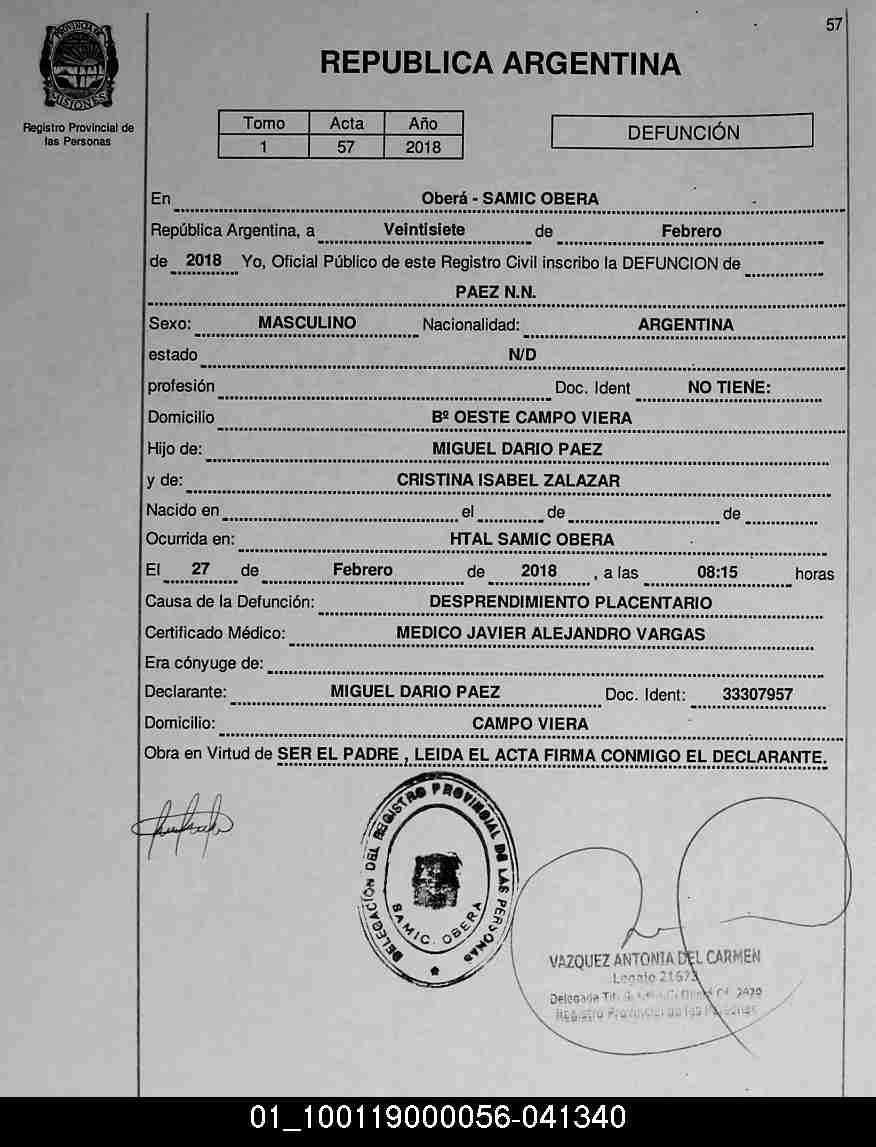 57
PROVINCIA DE
MISIONES
Registro Provincial de
las Personas
REPUBLICA ARGENTINA
Tomo Acta Año
1 57 2018
DEFUNCIÓN
En Oberá - SAMIC OBERA
República Argentina, a Veintisiete de Febrero
de 2018 Yo, Oficial Público de este Registro Civil inscribo la DEFUNCION de
PAEZ N.N.
Sexo: MASCULINO Nacionalidad: ARGENTINA
estado N/D
profesión Doc. Ident NO TIENE:
Domicilio Bº OESTE CAMPO VIERA
Hijo de: MIGUEL DARIO PAEZ
y de: CRISTINA ISABEL ZALAZAR
Nacido en el de de
Ocurrida en: HTAL SAMIC OBERA
El 27 de Febrero de 2018 , a las 08:15 horas
Causa de la Defunción: DESPRENDIMIENTO PLACENTARIO
Certificado Médico: MEDICO JAVIER ALEJANDRO VARGAS
Era cónyuge de:
Declarante: MIGUEL DARIO PAEZ Doc. Ident: 33307957
Domicilio: CAMPO VIERA
Obra en Virtud de SER EL PADRE , LEIDA EL ACTA FIRMA CONMIGO EL DECLARANTE.
DELEGACIÓN DEL REGISTRO PROVINCIAL DE LAS PERSONAS
SAMIC. OBERA
VAZQUEZ ANTONIA DEL CARMEN
Legajo 21673
Registro Provincial de las Personas
01_100119000056-041340